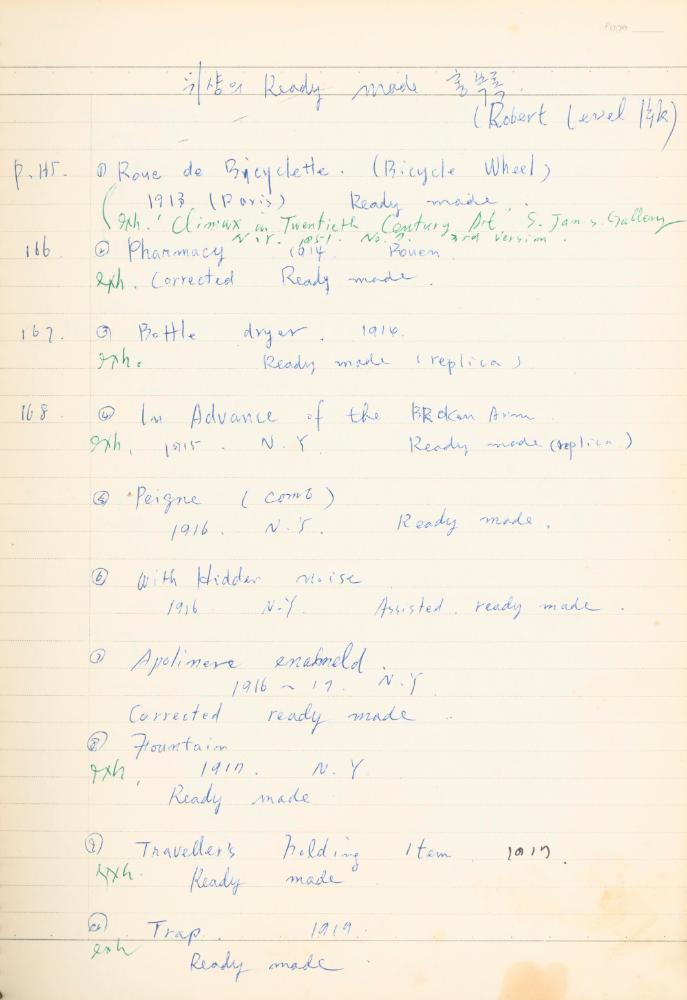 Page
뒤샹의 Ready made 총목록.
(Robert Level
P. 145. ① Roue de Bycyclette. (Bicycle Wheel)
1913 (Paris) Ready made.
(exh. "Climax in Twentieth Century Art, S. Janis Gallery
N.Y. 1951. No. 2. 3rd Version.
166 ② Pharmacy 1914 Rouen
exh. Corrected Ready made.
167. ③ Bottle dryer. 1914.
exh. Ready made (replica)
168. ④ In Advance of the BRoken Arm
exh. 1915. N.Y Ready made (replica)
⑤ Peigne (comb)
1916. N.Y. Ready made.
⑥ With Hidden noise
1916 N.Y. Assisted. ready made.
⑦ Apolinere enabmeld.
1916 ~ 17. N.Y
Corrected ready made
⑧ Fountain
exh, 1917. N.Y
Ready made
⑨ Traveller's Folding Item 1917.
exh. Ready made
⑩ Trap. 1919.
exh Ready made.